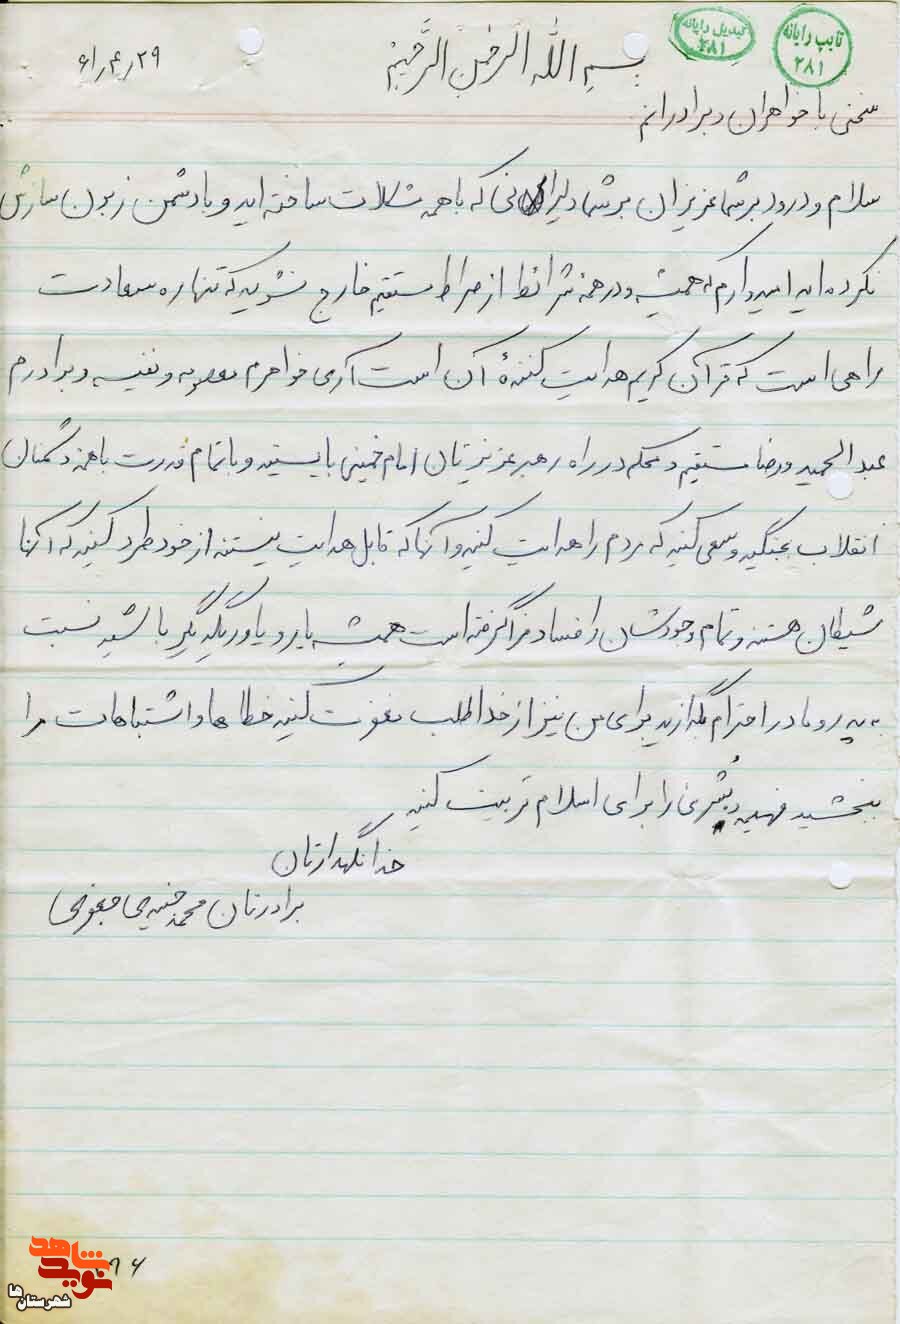 تایپ رایانه
۲۸۱
تبدیل رایانه
۲۸۱
بسم اللّه الرّحمن الرّحیم
۲۹ر۴ر۶۱
سخنی با خواهران و برادرانم
سلام و درود بر شما عزیزان بر شما دلیرانی که با همه مشکلات ساخته اید و با دشمن زبون سازش
نکرده اید امیدوارم که همیشه و در همه شرائط از صراط مستقیم خارج نشوید که تنها ره سعادت
راهی است که قرآن کریم هدایت کنندهٔ آن است آری خواهرم معصومه و نفیسه و برادرم
عبدالحمید و رضا مستقیم و محکم در راه رهبر عزیزتان امام خمینی بایستید و با تمام قدرت با همه دشمنان
انقلاب بجنگید و سعی کنید که مردم را هدایت کنید و آنها که قابل هدایت نیستند از خود طرد کنید که آنها
شیطان هستند و تمام وجودشان را فساد فرا گرفته است همیشه یار و یاور یکدیگر باشید نسبت
به پدر و مادر احترام بگذارید برای من نیز از خدا طلب مغفرت کنید خطاها و اشتباهات مرا
ببخشید فهیمه و بشری را برای اسلام تربیت کنید
خدا نگهدارتان
برادرتان محمد
نوید شاهد
شهرستان ها